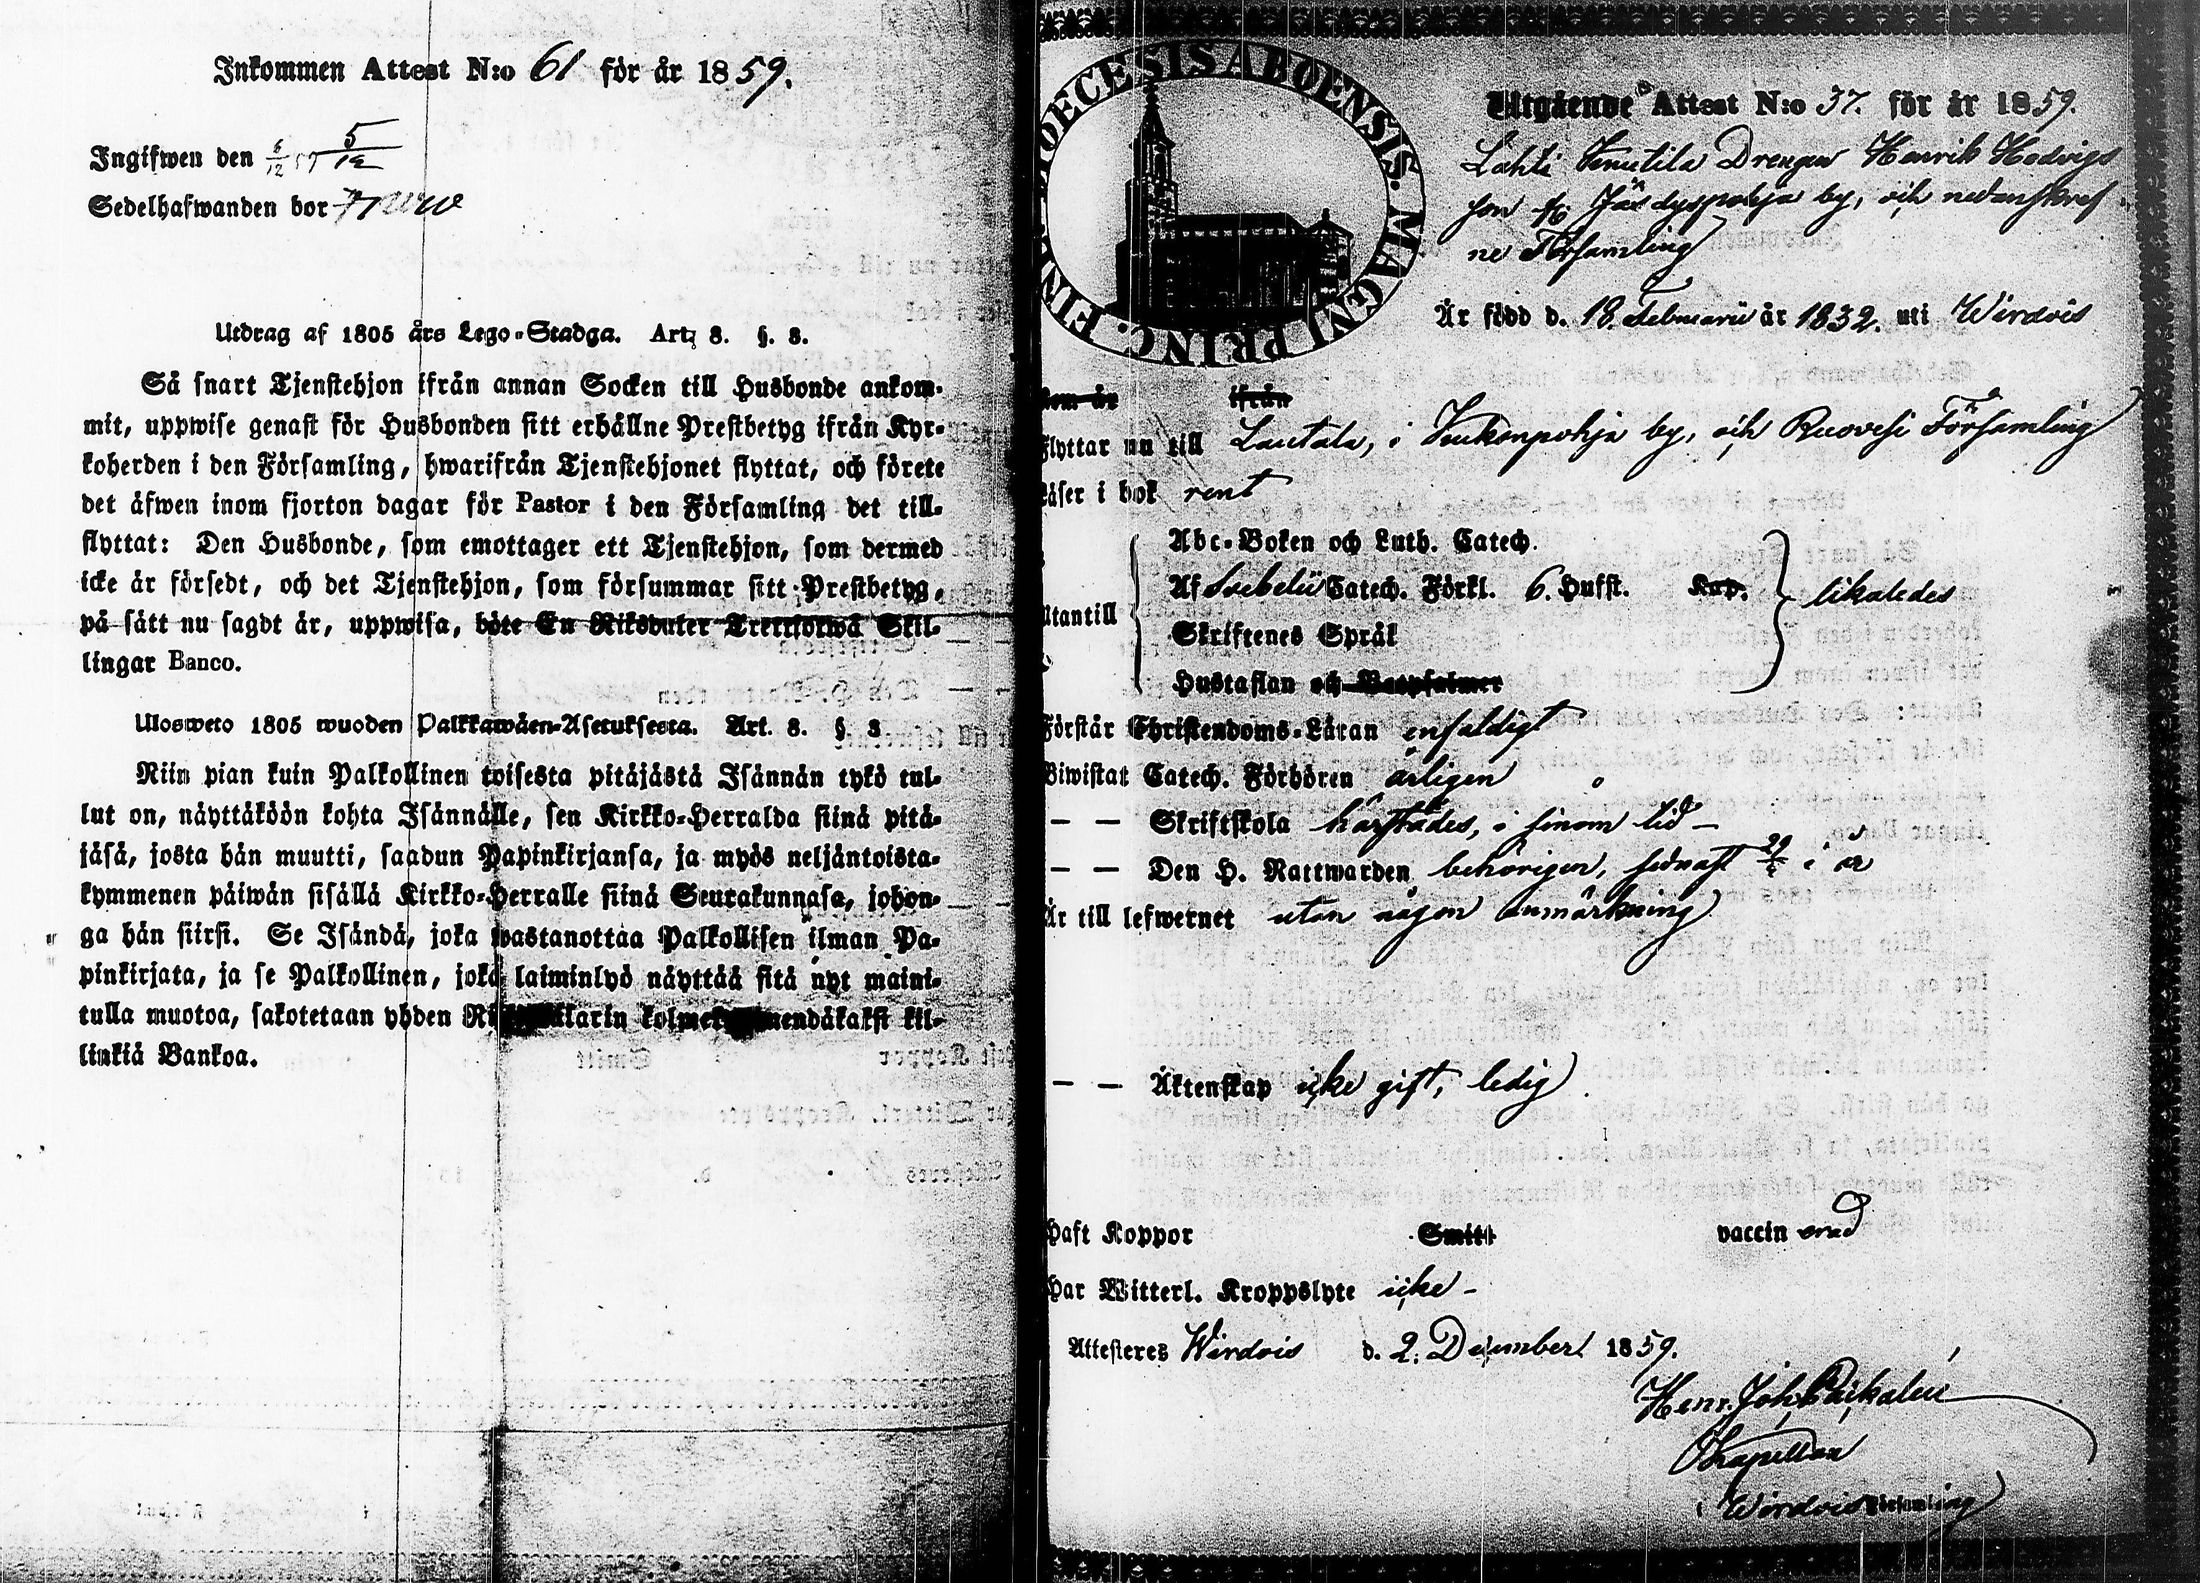 Inkommen Attest N:o 61 för år 1859.
Ingifwen den 5/12
Sedelhafwanden bor
Utdrag af 1805 års Lego-Stadga. Art. 8. §. 3.
Så snart Tjenstehjon ifrån annan Socken till Husbonde ankom-
mit, uppwise genast för Husbonden sitt erhållne Prestbetyg ifrån Kyr-
koherden i den Församling, hwarifrån Tjenstehjonet flyttat, och förete
det äfwen inom fjorton dagar för Pastor i den Församling det till-
flyttat: Den Husbonde, som emottager ett Tjenstehjon, som dermed
icke är försedt, och det Tjenstehjon, som försummar sitt Prestbetyg,
på sätt nu sagdt är, uppwisa, böte En Riksdaler Trettiotwå Skil-
lingar Banco.
Ulosweto 1805 wuoden Palkkawäen-Asetuksesta. Art. 8. § 3
Niin pian kuin Palkollinen toisesta pitäjästä Isännän tykö tul-
lut on, näyttäköön kohta Isännälle, sen Kirkko-Herralda siinä pitä-
jäsä, josta hän muutti, saadun Papinkirjansa, ja myös neljäntoista-
kymmenen päiwän sisällä Kirkko-Herralle siinä Seurakunnasa, johon-
ga hän siirsi. Se Isändä, joka wastanottaa Palkollisen ilman Pa-
pinkirjata, ja se Palkollinen, joka laiminlyö näyttää sitä nyt maini-
tulla muotoa, sakotetaan yhden kil-
linkiä Bankoa.
DIOECESIS ABOENSIS. MAGNI PRINC. FINL.
Utgående Attest N:o 37. för år 1859.
Lahti Drengen Henrik Hedvigs
son by, och nedanskref-
ne Församling
Är född d. 18. Februarii år 1832. uti Wirdois
som är ifrån
Flyttar nu till Lautala, i by, och Ruovesi Församling
Läser i bok rent
Utantill
Abc-Boken och Luth. Catech.
Af Svebelii Catech. Förkl. 6. Hufst. Kap.
Skriftenes Språk
Hustaflan och Botpsalmer
likaledes
Förstår Christendoms-Läran enfaldigt
Biwistat Catech. Förhören årligen
— — Skriftskola härstädes, i sinom tid –
— — Den H. Nattwarden behörigen, sednast i år
Är till lefwernet utan någon anmärkning
— — Äktenskap icke gift, ledig
Haft Koppor Smitt vaccinerad
Har Witterl. Kroppslyte icke –
Attesteres Wirdois d. 2. December 1859.
Henr. Joh.
Kapellan
i Wirdois Församling